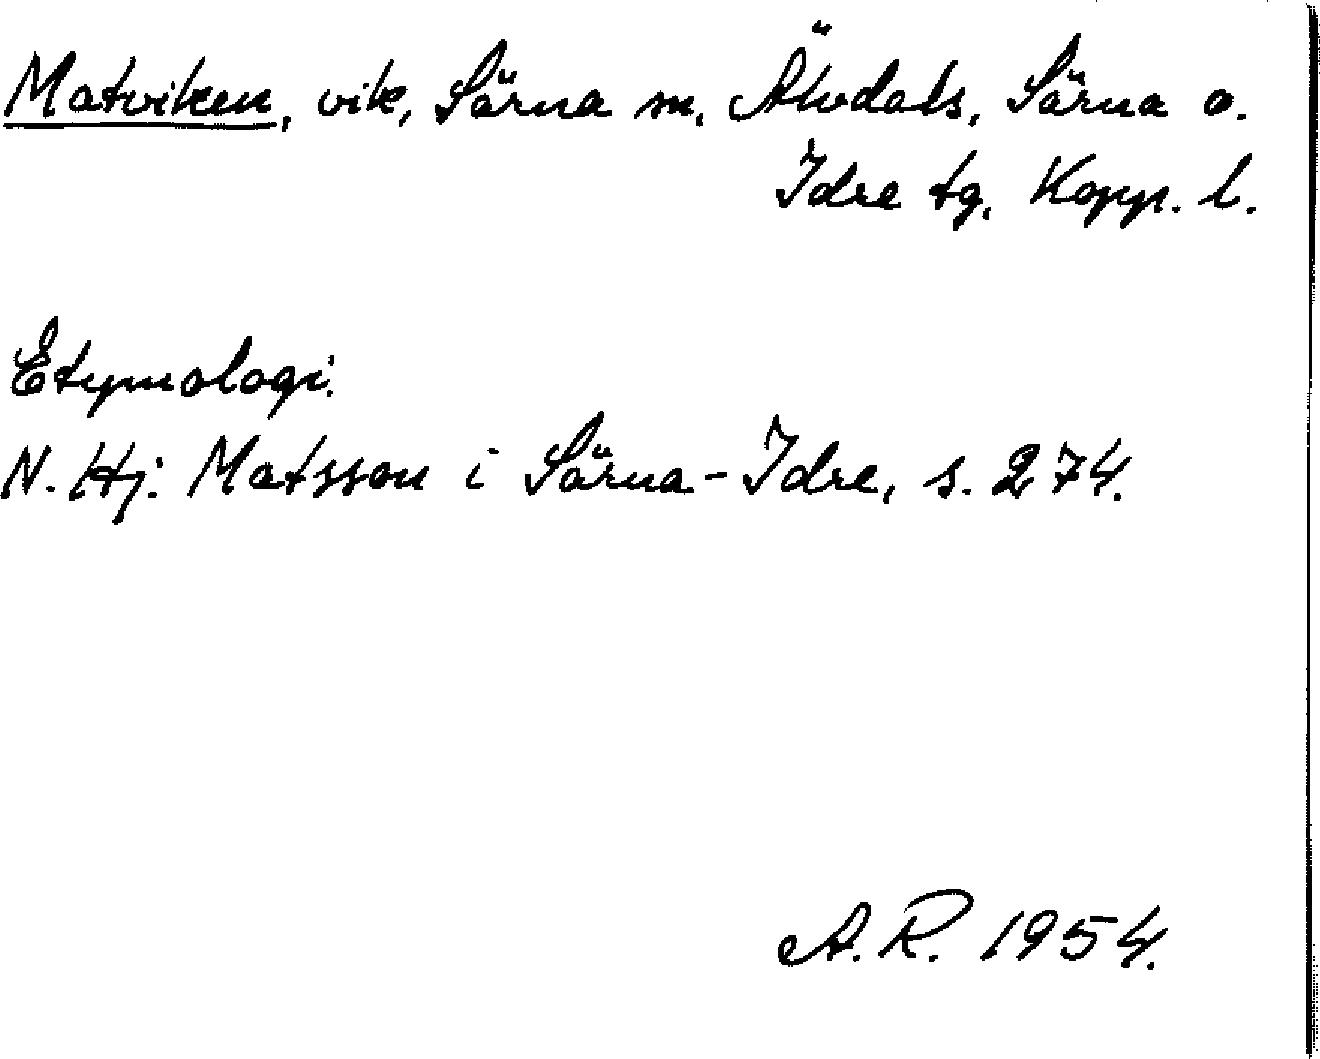 Matviken, vik, Särna sn, Älvdals, Särna o.
Idre tg, Kopp. l.
Etymologi.
N. Hj. Matsson i Särna-Idre, s. 274.
A.R. 1954.